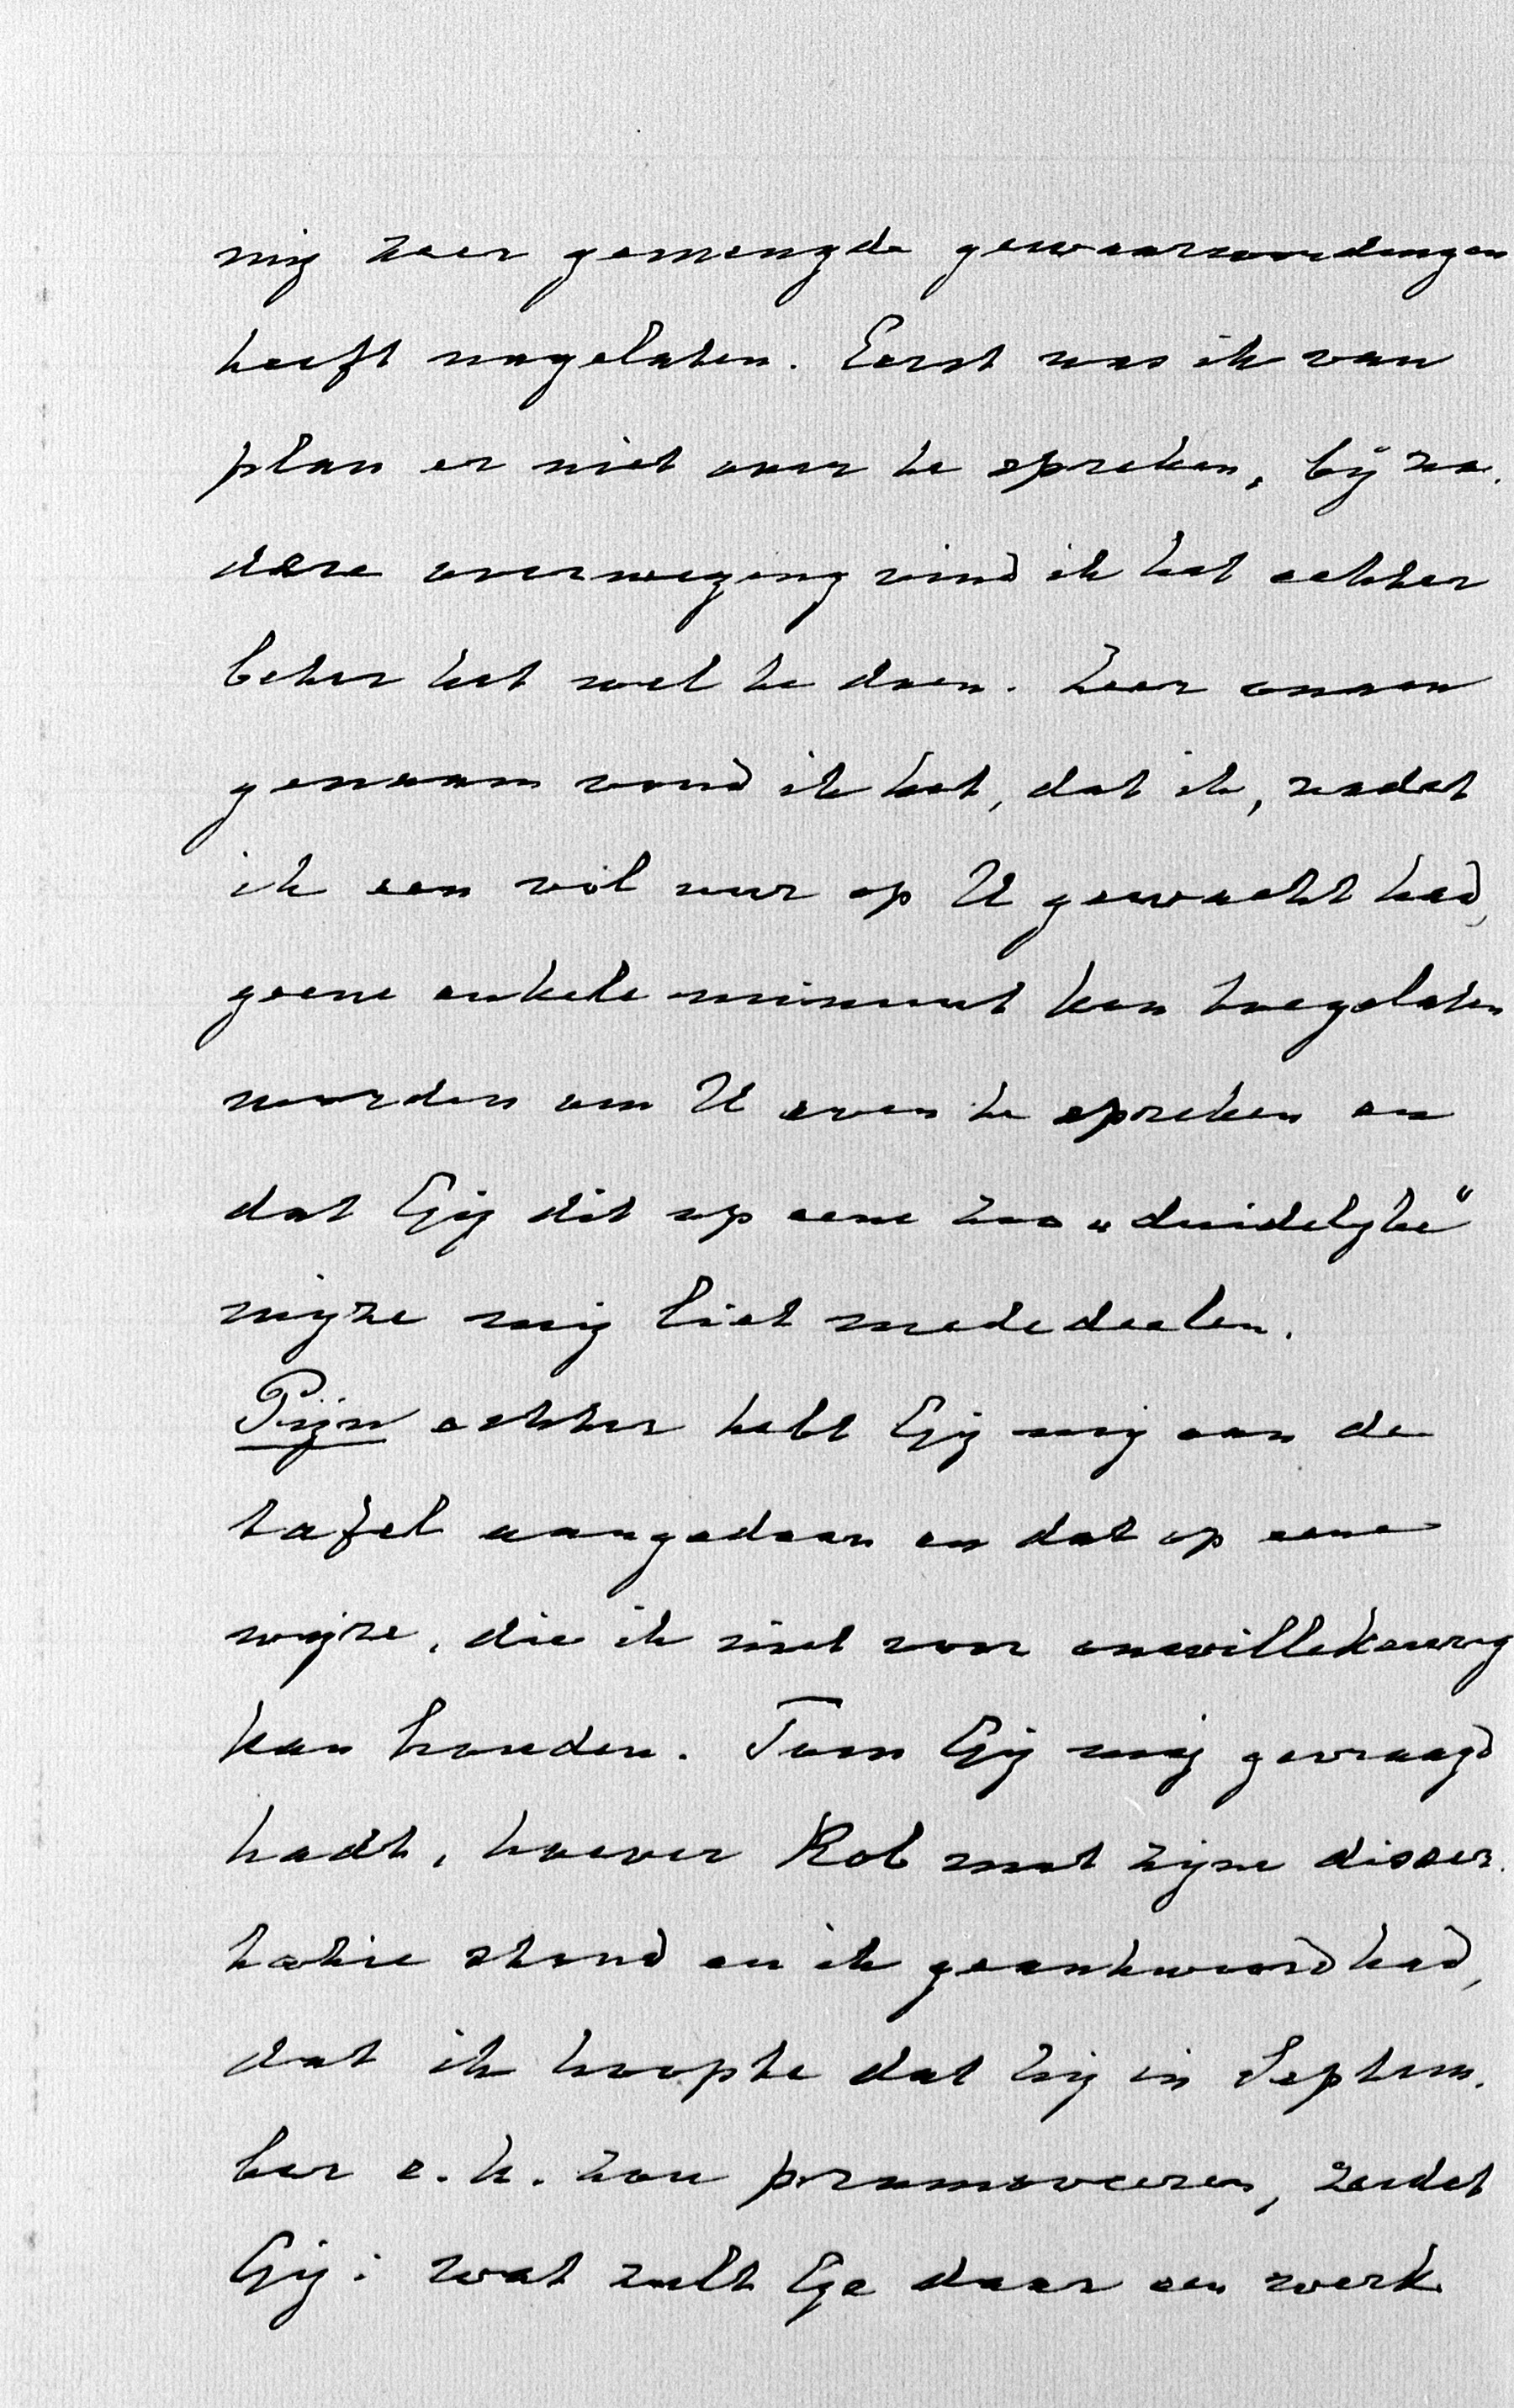 mij zeer gemengde gewaarwordingen
heeft nagelaten. Eerst was ik van
plan er niet over te spreken, bij na.
dere overweging vind ik het echter
beter het wel te doen. Zeer onaan
genaam vond ik het, dat ik, nadat
ik een vol uur op U gewacht had,
geene enkele minuut kon toegelaten
worden om U even te spreken en
dat Gij dit op eene zoo „duidelijke"
wijze mij liet mededeelen.
Pijn echter hebt Gij mij aan de
tafel aangedaan en dat op eene
wijze, die ik niet voor onwillekeurig
kan houden. Toen Gij mij gevraagd
hadt, hoever Rob met zijne disser.
tatie stond en ik geantwoord had,
dat ik hoopte dat hij in Septem.
ber e.k. zou promoveeren, zeidet
Gij: wat zult Ge daar een werk